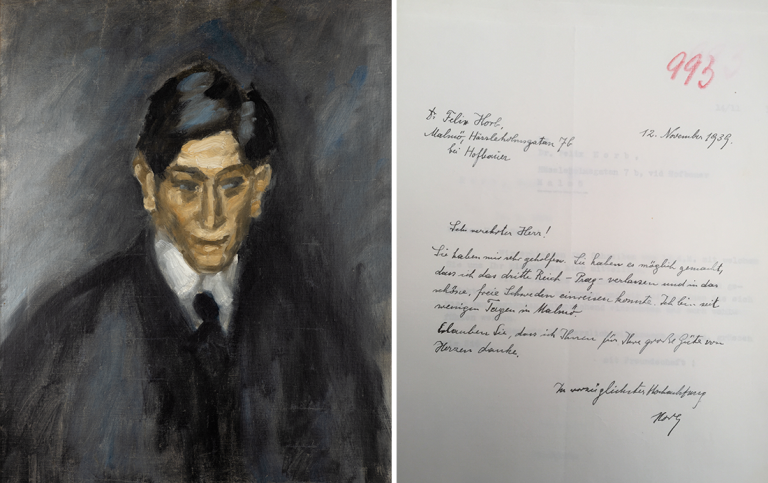 993
Dr. Felix Horb,
Malmö, Hässleholmsgatan 7b
bei Hofbauer
12. November 1939.
Sehr verehrter Herr!
Sie haben mir sehr geholfen. Sie haben es möglich gemacht,
dass ich das dritte Reich – Prag – verlassen und in das
schöne, freie Schweden einreisen konnte. Ich bin seit
wenigen Tagen in Malmö.
Erlauben Sie, dass ich Ihnen für Ihre große Güte von
Herzen danke.
In vorzüglichster Hochachtung
Horb